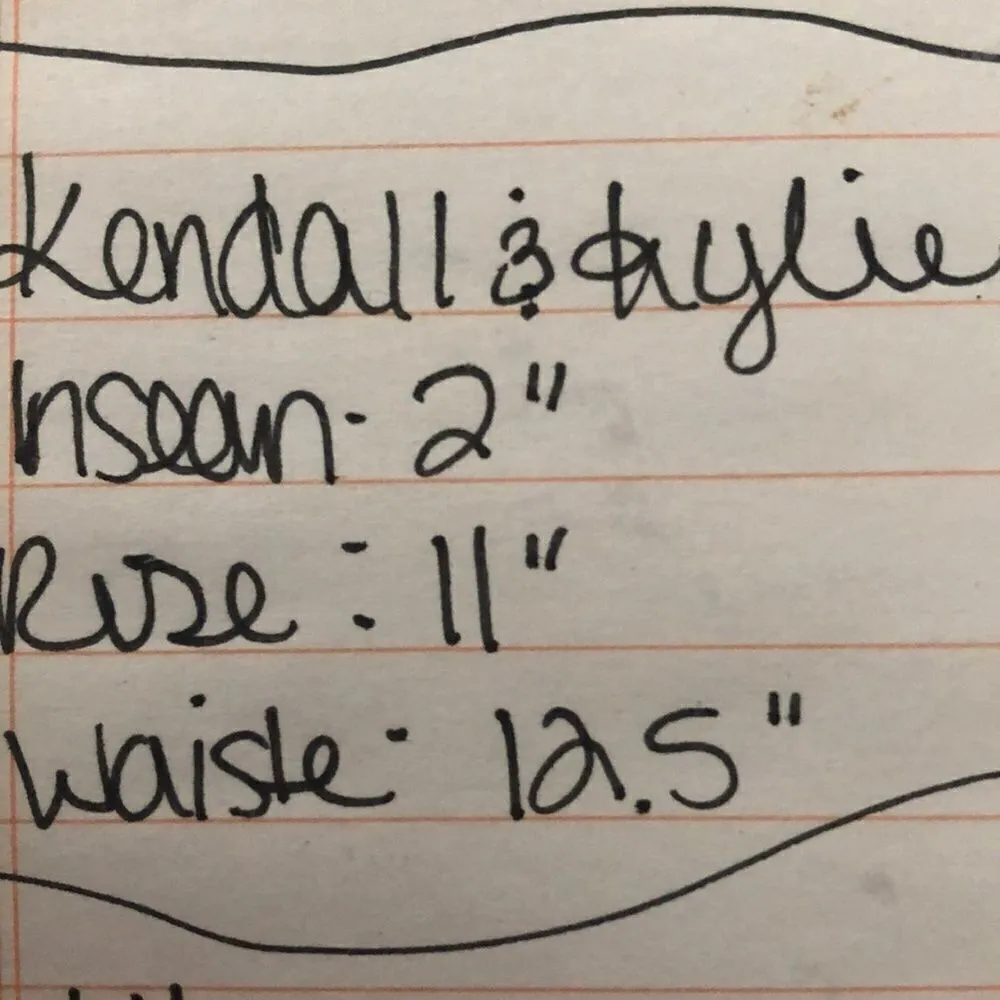 Kendall & Kylie
Inseam- 2"
Rise: 11"
Waiste- 12.5"